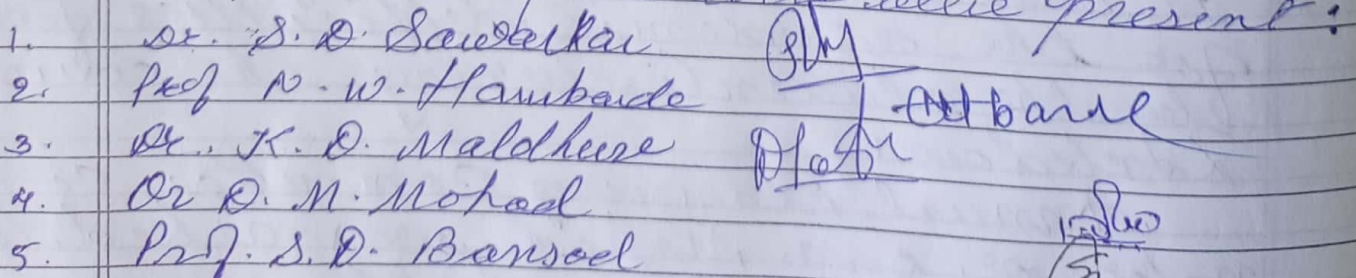 present :
1. Dr. S. D. Sawterkar
2. Prof N. W. Hambarde
3. Dr. K. D. Maldhure
4. Dr D. M. Mohod
5. Prof. S. D. Bansod